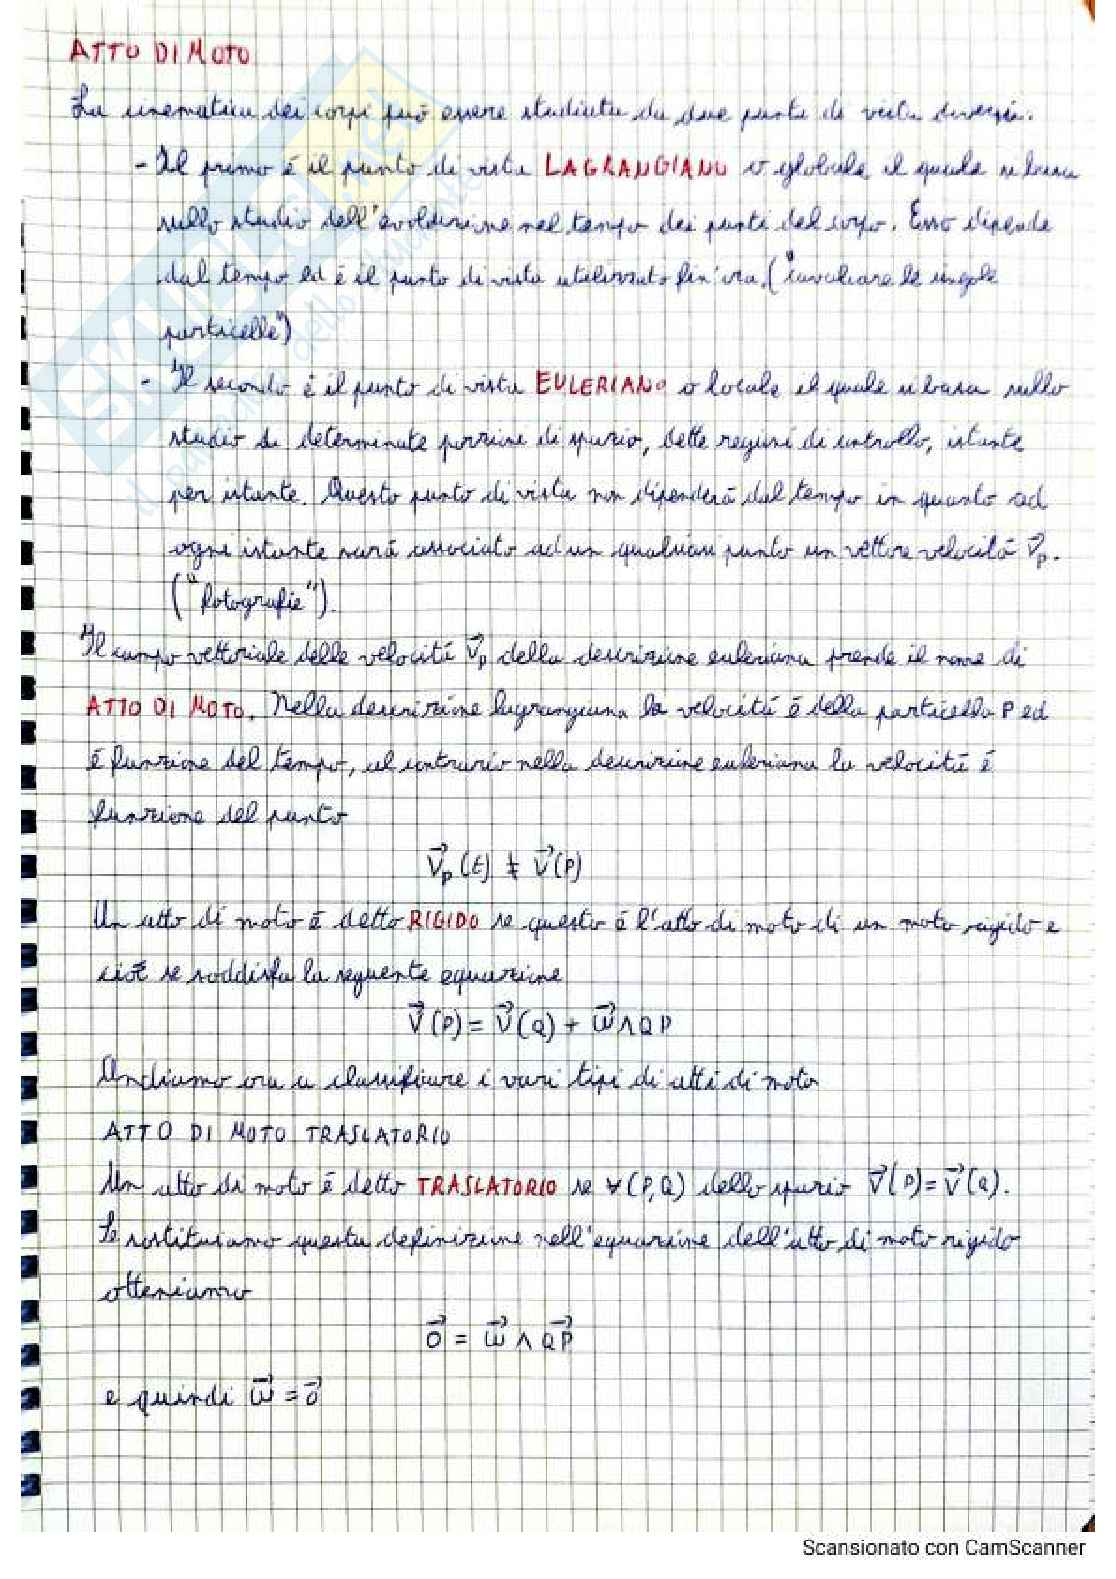 ATTO DI MOTO
La cinematica dei corpi può essere studiata da due punti di vista diversi.
- Il primo è il punto di vista LAGRANGIANO o globale il quale si basa
sullo studio dell'evoluzione nel tempo dei punti del corpo. Esso dipende
dal tempo ed è il punto di vista utilizzato fin'ora ("cavalcare le singole
particelle")
- Il secondo è il punto di vista EULERIANO o locale il quale si basa sullo
studio di determinate porzioni di spazio, dette regioni di controllo, istante
per istante. Questo punto di vista non dipenderà dal tempo in quanto ad
ogni istante sarà associato ad un qualsiasi punto un vettore velocità v⃗ₚ.
("fotografie").
Il campo vettoriale delle velocità v⃗ₚ della descrizione euleriana prende il nome di
ATTO DI MOTO. Nella descrizione lagrangiana la velocità è della particella P ed
è funzione del tempo, al contrario nella descrizione euleriana la velocità è
funzione del punto
v⃗ₚ(t) ≠ v⃗(P)
Un atto di moto è detto RIGIDO se questo è l'atto di moto di un moto rigido e
cioè se soddisfa la seguente equazione
v⃗(P) = v⃗(Q) + ω⃗ ∧ QP
Andiamo ora a classificare i vari tipi di atti di moto
ATTO DI MOTO TRASLATORIO
Un atto di moto è detto TRASLATORIO se ∀(P,Q) dello spazio v⃗(P) = v⃗(Q).
Se sostituiamo questa definizione nell'equazione dell'atto di moto rigido
otteniamo
0⃗ = ω⃗ ∧ QP⃗
e quindi ω⃗ = 0⃗
SKUOLA.net
il paradiso dello studente
Scansionato con CamScanner